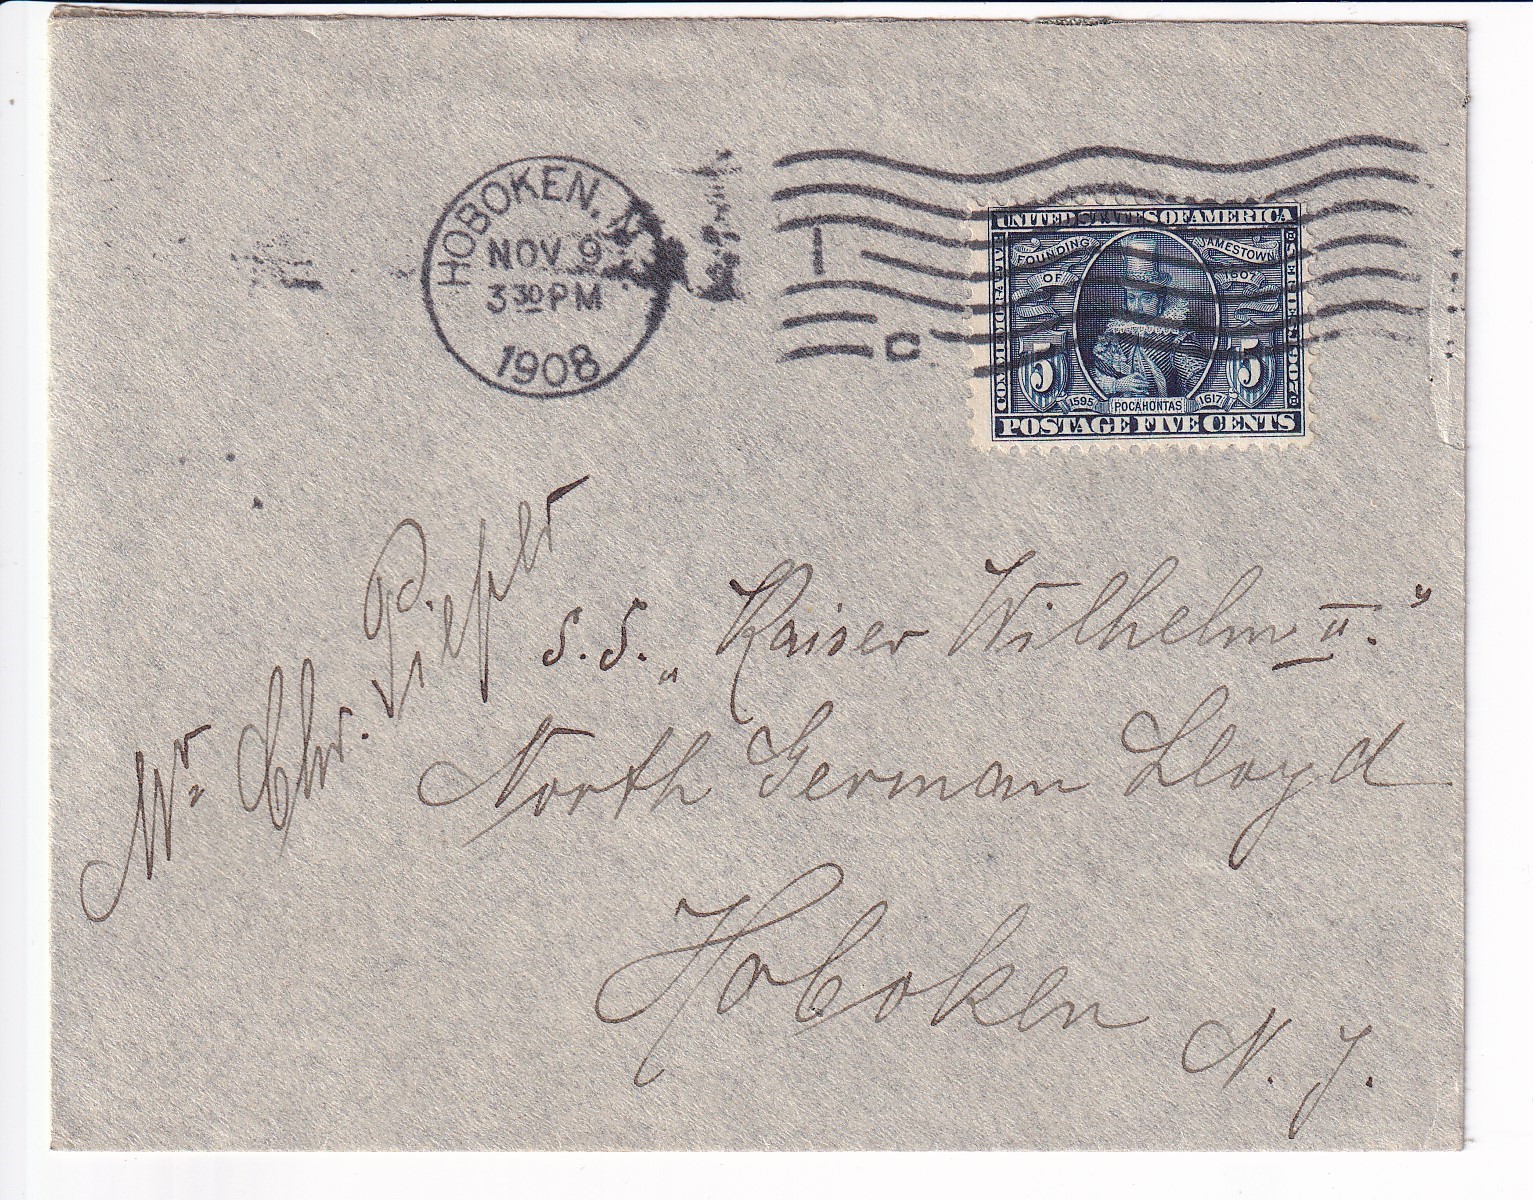 HOBOKEN, N.
NOV 9
3 30 PM
1908
1
C
UNITED STATES OF AMERICA
COMMEMORATIVE
SERIES 1907
FOUNDING
OF
JAMESTOWN
1607
5
5
1595
POCAHONTAS
1617
POSTAGE FIVE CENTS
Mr. Chr.
S.S. „Kaiser Wilhelm II."
North German Lloyd
Hoboken
N. J.